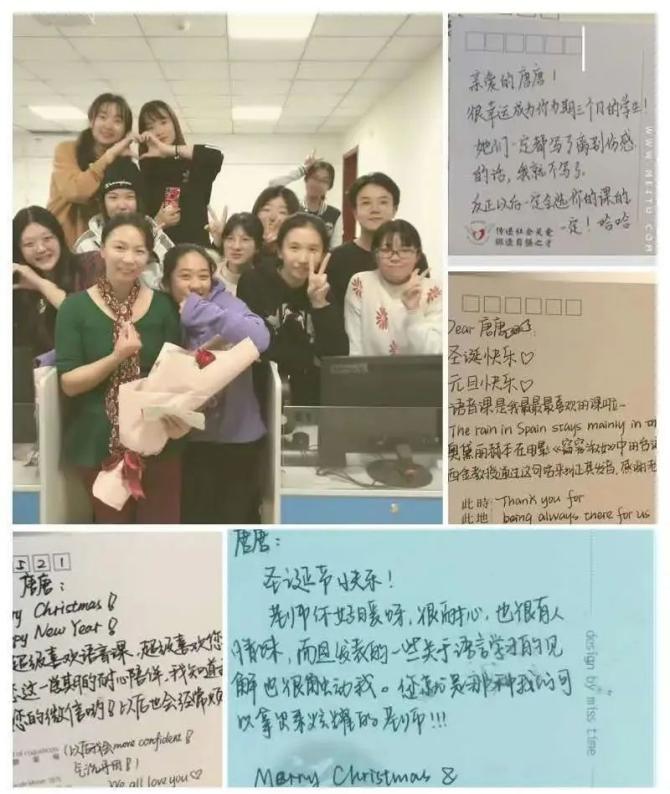 亲爱的唐唐！
很幸运成为你为期三个月的学生！
她们一定都写了离别伤感
的话，我就不写了
反正以后一定会选你的课的
一定！哈哈
传递社会关爱
缔造自强之才
WWW.MEITU.COM
Dear 唐唐
圣诞快乐♡
元旦快乐♡
语音课是我最最最喜欢的课啦~
The rain in Spain stays mainly in th
奥黛丽赫本在电影《窈窕淑女》中的台词
此时 Thank you for
此地 being always there for us
521
唐唐：
ry Christmas
ppy New Year
超级喜欢语音课，超级喜欢您
这一学期的耐心陪伴，我知道
您的微信哟 以后也会经常
(以后会more confident
We all love you♡
唐唐：
圣诞节快乐！
老师你好暖呀，很耐心，也很有人
情味，而且发表的一些关于语言学习的见
解也很触动我。您就是那种我们可
以拿出来炫耀的老师!!!
Merry Christmas
design by miss time